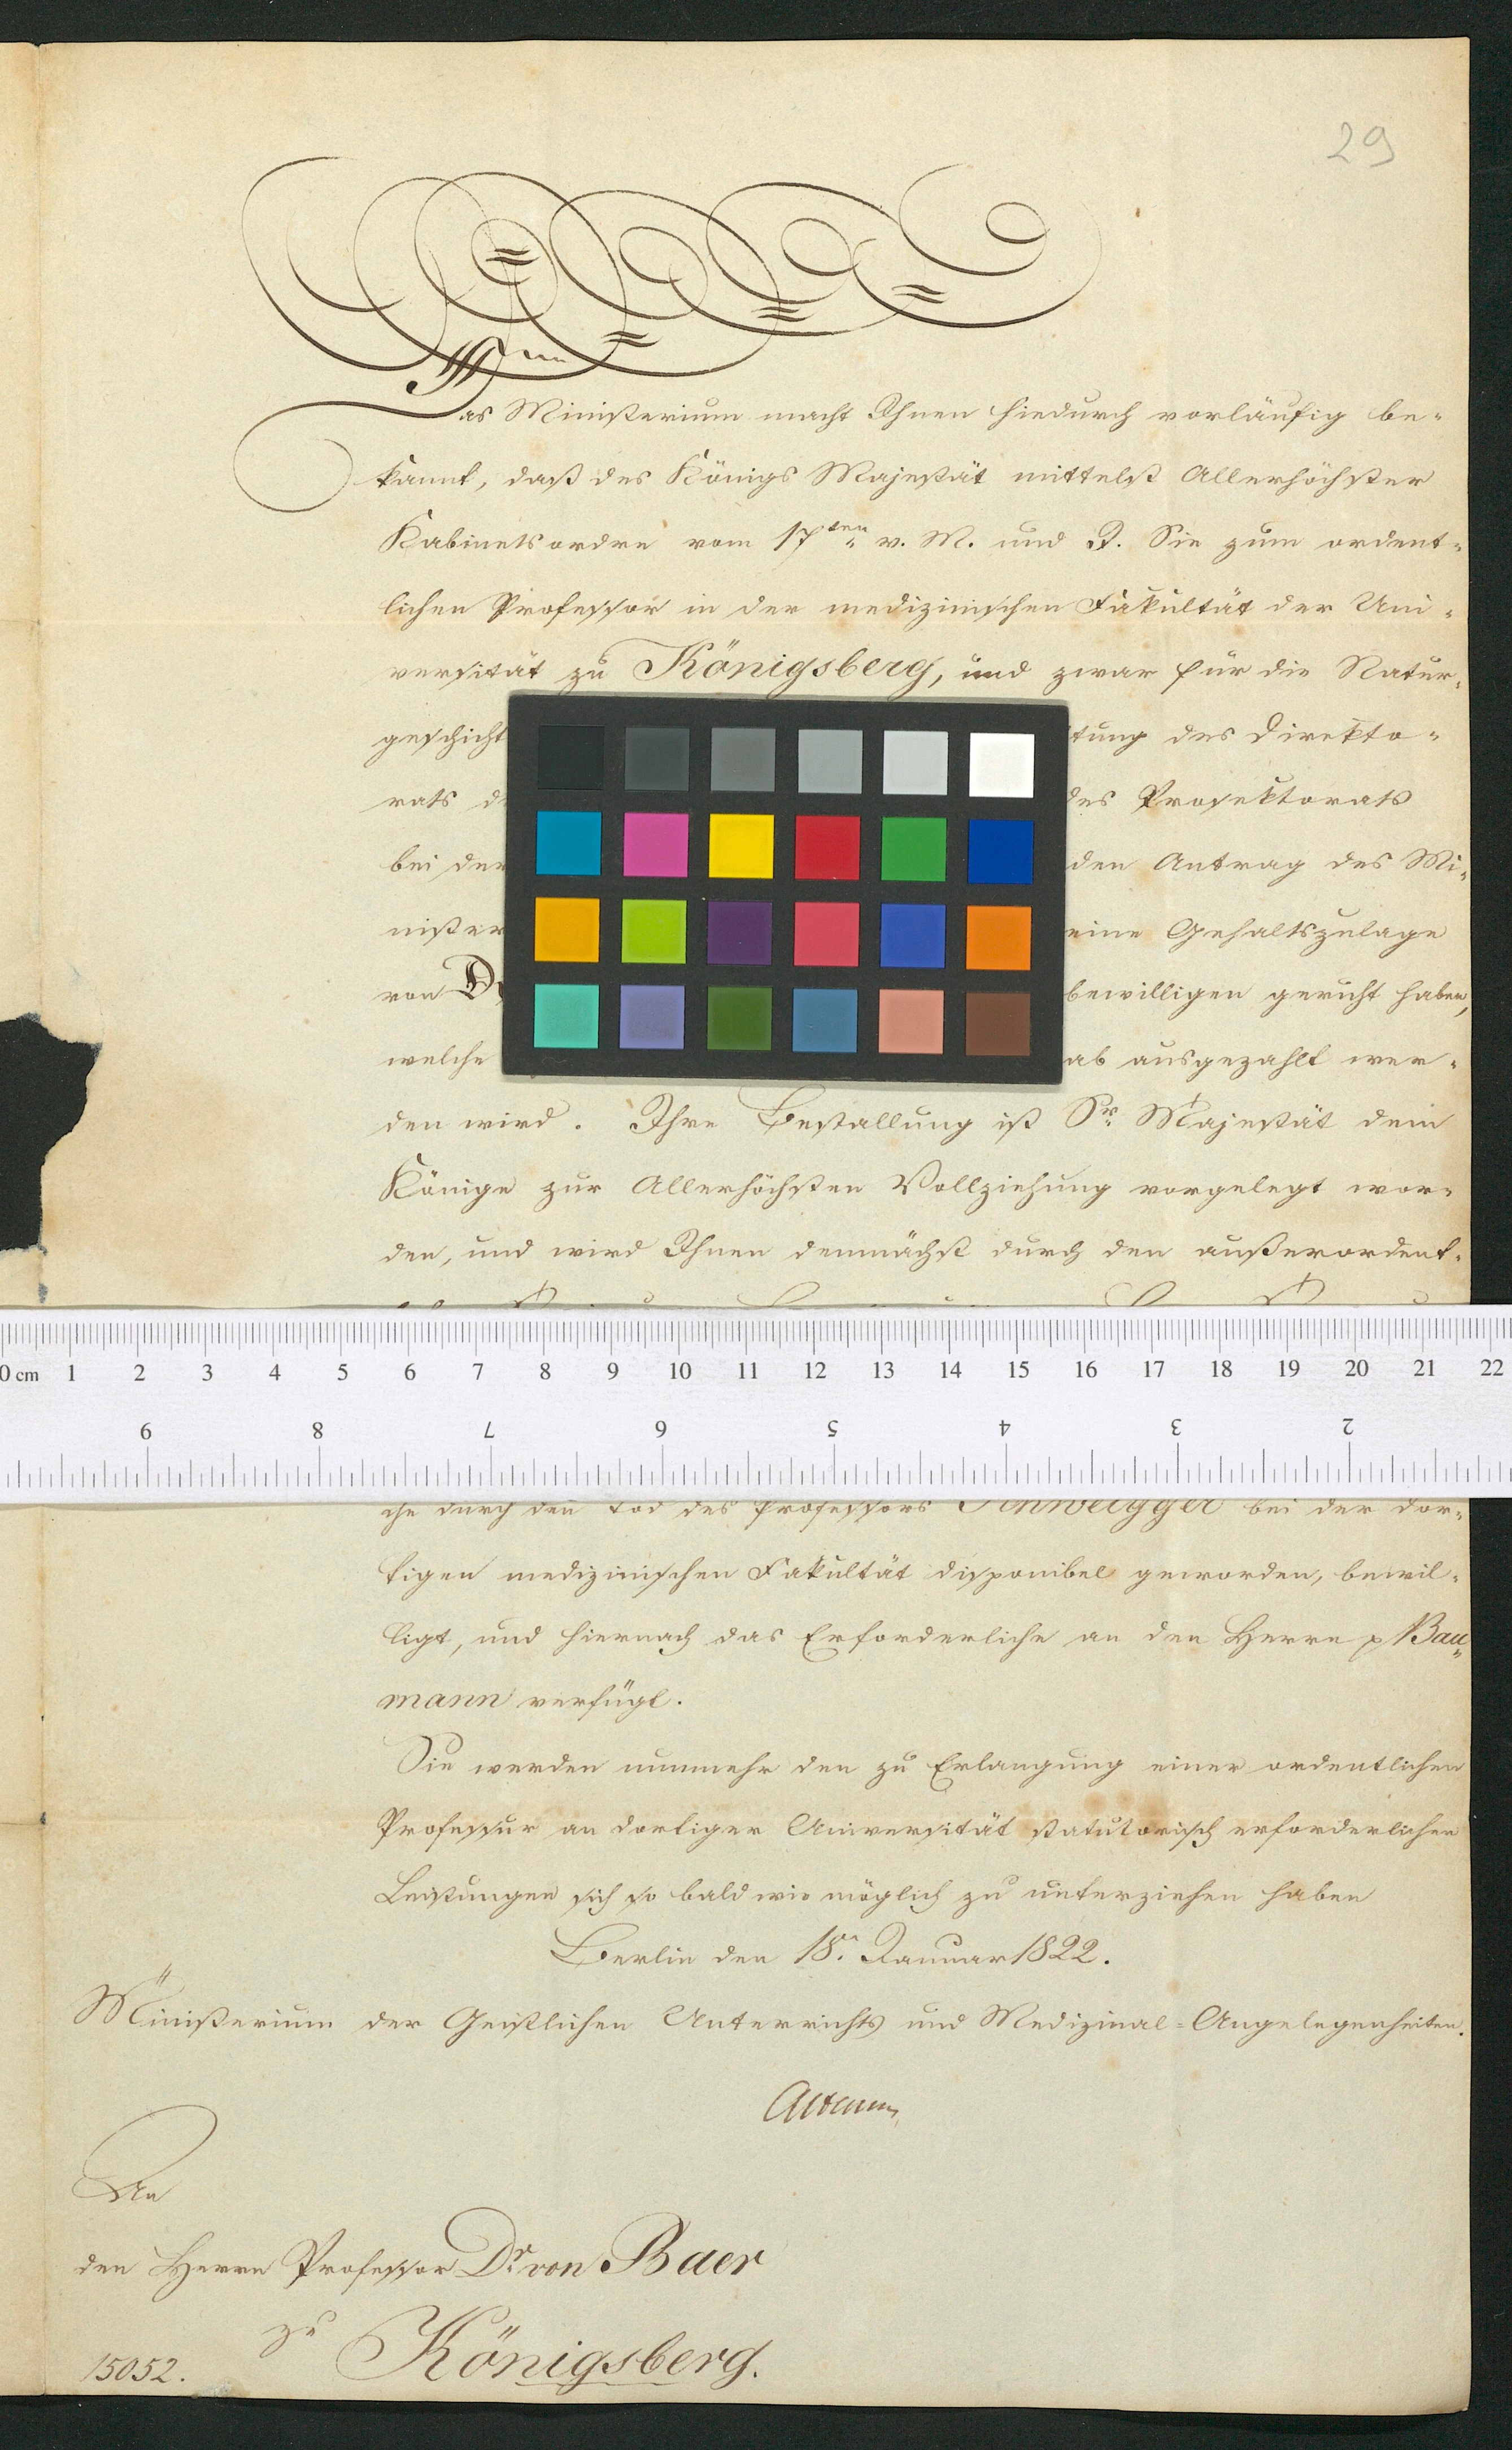 29
Das Ministerium macht Ihnen hiedurch vorläufig be-
kannt, daß des Königs Majestät mittelst Allerhöchster
Kabinetsordre vom 17ten v. M. und J. Sie zum ordent-
lichen Professor in der medizinischen Fakultät der Uni-
versität zu Königsberg, und zwar für die Natur-
geschicht tung des Direkto-
rats d des Prosektorats
bei der den Antrag des Mi-
nister eine Gehaltszulage
von D bewilligen geruht haben,
welche ab ausgezahlt wer-
den wird. Ihre Bestallung ist Sr. Majestät dem
Könige zur Allerhöchsten Vollziehung vorgelegt wor-
den, und wird Ihnen demnächst durch den außerordent-
0 cm 1 2 3 4 5 6 7 8 9 10 11 12 13 14 15 16 17 18 19 20 21 22
9 8 7 6 5 4 3 2
che durch den Tod des Professors Schweigger bei der dor-
tigen medizinischen Fakultät disponibel geworden, bewil-
ligt, und hiernach das Erforderliche an den Herrn p Bau-
mann verfügt.
Sie werden nunmehr den zu Erlangung einer ordentlichen
Professur an dortiger Universität statutorisch erforderlichen
Leistungen sich so bald wie möglich zu unterziehen haben
Berlin den 18n Januar 1822.
Ministerium der Geistlichen Unterrichts und Medizinal-Angelegenheiten.
Altenst
An
den Herrn Professor Dr. von Baer
zu Königsberg.
15052.